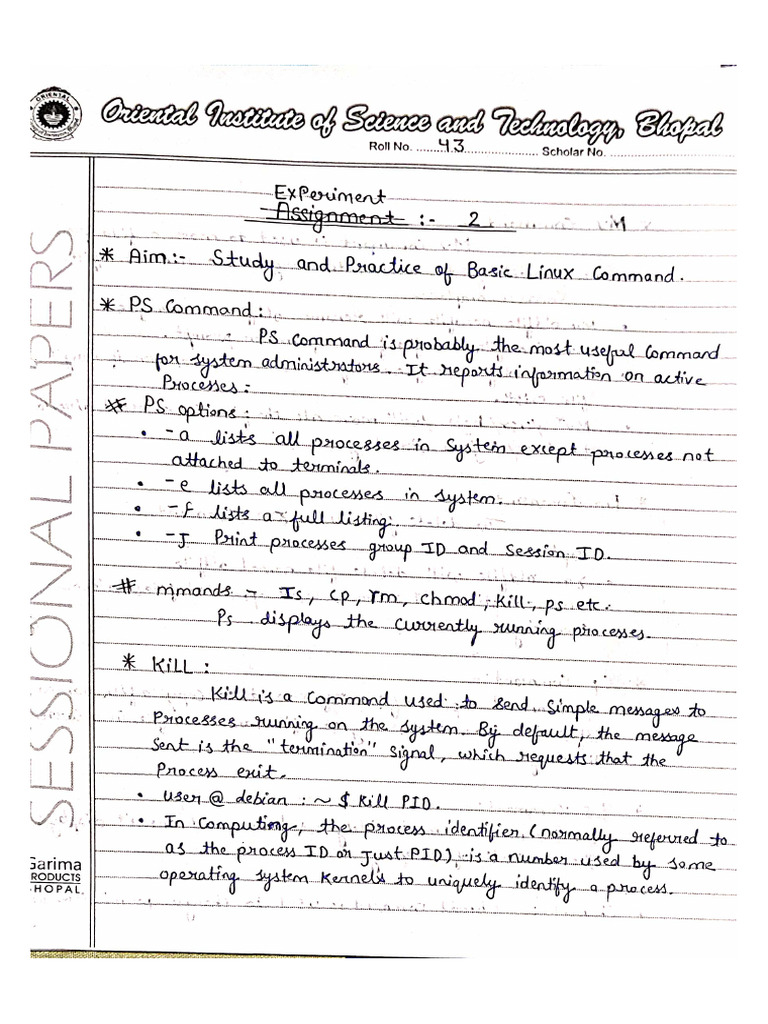 Oriental Institute of Science and Technology, Bhopal
Roll No. ........43........................ Scholar No. ........................
Experiment
Assignment :- 2
* Aim:- Study and Practice of Basic Linux Command.
* PS Command:
- PS Command is probably the most useful Command
for system administrators. It reports information on active
Processes:
# PS options:
• -a lists all processes in System except processes not
attached to terminals.
• -e lists all processes in system.
• -f lists a full listing.
• -J Print processes group ID and Session ID.
# mmands - Is, cp, rm, chmod, kill, ps etc.
Ps displays the currently running processes.
* KiLL:
Kill is a command used to send simple messages to
Processes running on the system. By default, the message
sent is the "termination" signal, which requests that the
Process exit.
• user@debian: ~ $ Kill PID.
• In computing, the process identifier (normally referred to
as the process ID or Just PID) is a number used by some
operating system Kernels to uniquely identify a process.
SESSIONAL PAPERS
Garima
PRODUCTS
BHOPAL